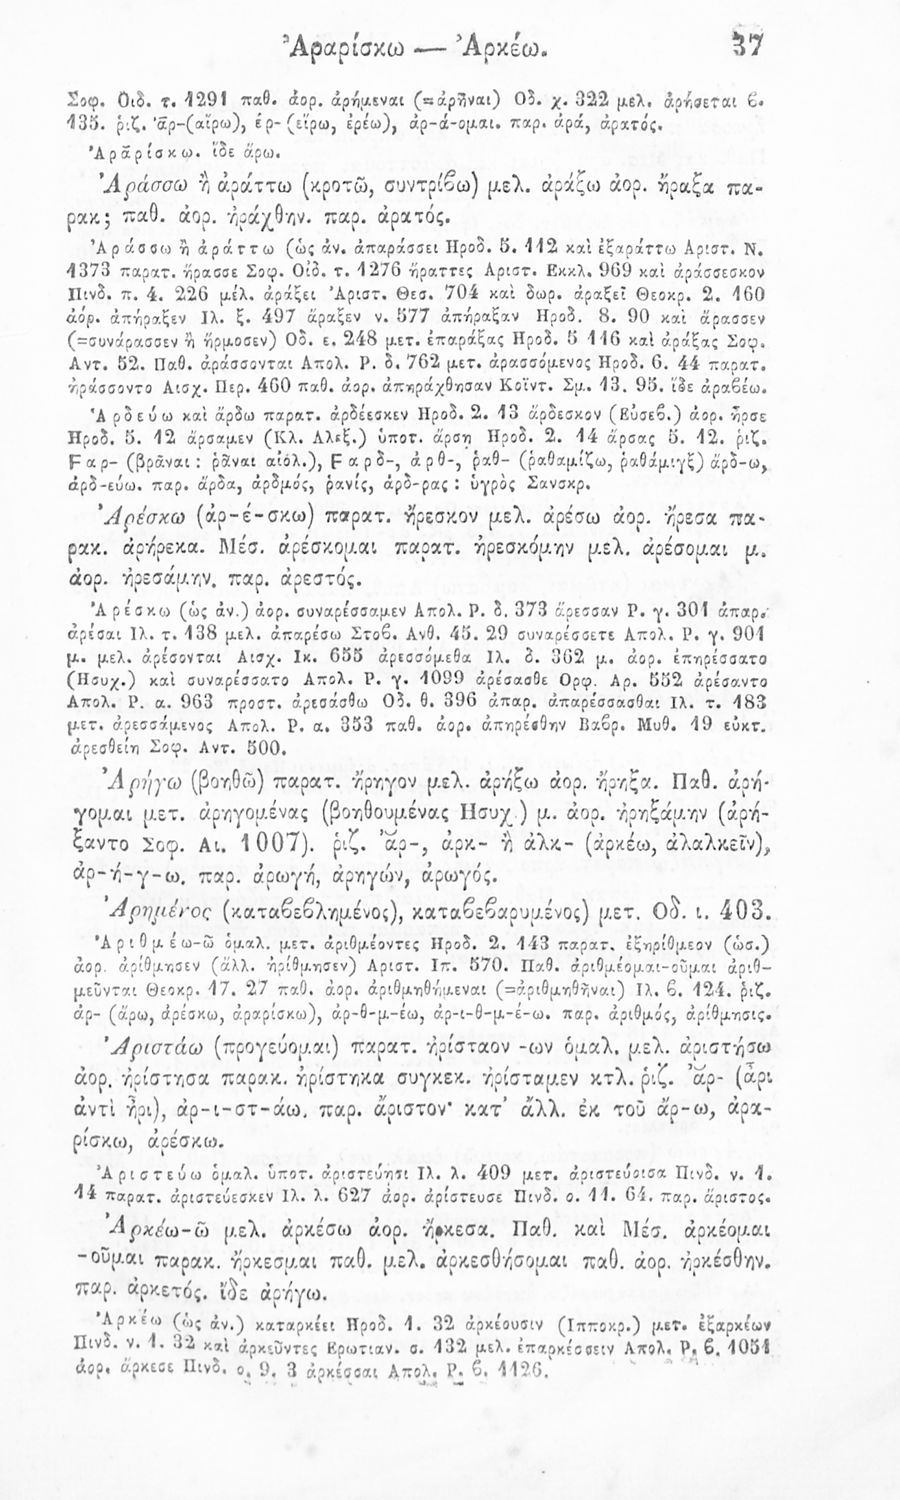 Ἀραρίσκω — Ἀρκέω. 37
Σοφ. Οιδ. τ. 1291 παθ. ἀορ. ἀρήμεναι (=ἀρῆναι) Οδ. χ. 322 μελ. ἀρήσεται ϐ.
135. ῥιζ. ἀρ-(αἴρω), ἐρ-(εἴρω, ἐρέω), ἀρ-ά-ομαι. παρ. ἀρά, ἀρατός.
Ἀρᾱρίσκω. ἴδε ἄρω.
Ἀράσσω ἢ ἀράττω (κροτῶ, συντρίϐω) μελ. ἀράξω ἀορ. ἤραξα πα-
ρακ; παθ. ἀορ. ἠράχθην. παρ. ἀρατός.
Ἀράσσω ἢ ἀράττω (ὡς ἀν. ἀπαράσσει Ηροδ. 5. 112 καὶ ἐξαράττω Αριστ. Ν.
1373 παρατ. ἤρασσε Σοφ. Οἰδ. τ. 1276 ἤραττες Αριστ. Εκκλ. 969 καὶ ἀράσσεσκον
Πινδ. π. 4. 226 μέλ. ἀράξει Ἀριστ. Θεσ. 704 καὶ δωρ. ἀραξεῖ Θεοκρ. 2. 160
ἀόρ. ἀπήραξεν Ιλ. ξ. 497 ἄραξεν ν. 577 ἀπήραξαν Ηροδ. 8. 90 καὶ ἄρασσεν
(=συνάρασσεν ἢ ἥρμοσεν) Οδ. ε. 248 μετ. ἐπαράξας Ηροδ. 5 116 καὶ ἀράξας Σοφ.
Αντ. 52. Παθ. ἀράσσονται Απολ. Ρ. δ. 762 μετ. ἀρασσόμενος Ηροδ. 6. 44 παρατ.
ἠράσσοντο Αισχ. Περ. 460 παθ. ἀορ. ἀπηράχθησαν Κοϊντ. Σμ. 13. 95. ἴδε ἀραϐέω.
Ἀρδεύω καὶ ἄρδω παρατ. ἀρδέεσκεν Ηροδ. 2. 13 ἄρδεσκον (Εὐσεϐ.) ἀορ. ἦρσε
Ηροδ. 5. 12 ἄρσαμεν (Κλ. Αλεξ.) ὑποτ. ἄρσῃ Ηροδ. 2. 14 ἄρσας 5. 12. ῥιζ.
Ϝαρ- (βρᾶναι: ῥᾶναι αἰόλ.), Ϝαρδ-, ἀρθ-, ῥαθ- (ῥαθαμίζω, ῥαθάμιγξ) ἄρδ-ω,
ἀρδ-εύω. παρ. ἄρδα, ἀρδμός, ῥανίς, ἀρδ-ρας: ὑγρὸς Σανσκρ.
Ἀρέσκω (ἀρ-έ-σκω) παρατ. ἤρεσκον μελ. ἀρέσω ἀορ. ἤρεσα πα-
ρακ. ἀρήρεκα. Μέσ. ἀρέσκομαι παρατ. ἠρεσκόμην μελ. ἀρέσομαι μ.
ἀορ. ἠρεσάμην. παρ. ἀρεστός.
Ἀρέσκω (ὡς ἀν.) ἀορ. συναρέσσαμεν Απολ. Ρ. δ. 373 ἄρεσσαν Ρ. γ. 301 ἀπαρ.
ἀρέσαι Ιλ. τ. 138 μελ. ἀπαρέσω Στοϐ. Ανθ. 45. 29 συναρέσσετε Απολ. Ρ. γ. 901
μ. μελ. ἀρέσονται Αισχ. Ικ. 655 ἀρεσσόμεθα Ιλ. δ. 362 μ. ἀορ. ἐπηρέσσατο
(Ησυχ.) καὶ συναρέσσατο Απολ. Ρ. γ. 1099 ἀρέσασθε Ορφ. Αρ. 552 ἀρέσαντο
Απολ. Ρ. α. 963 προστ. ἀρεσάσθω Οδ. θ. 396 ἀπαρ. ἀπαρέσσασθαι Ιλ. τ. 183
μετ. ἀρεσσάμενος Απολ. Ρ. α. 353 παθ. ἀορ. ἀπηρέσθην Βαϐρ. Μυθ. 19 εὐκτ.
ἀρεσθείη Σοφ. Αντ. 500.
Ἀρήγω (βοηθῶ) παρατ. ἤρηγον μελ. ἀρήξω ἀορ. ἤρηξα. Παθ. ἀρή-
γομαι μετ. ἀρηγομένας (βοηθουμένας Ησυχ.) μ. ἀορ. ἠρηξάμην (ἀρή-
ξαντο Σοφ. Αι. 1007). ῥιζ. ἀρ-, ἀρκ- ἢ ἀλκ- (ἀρκέω, ἀλαλκεῖν),
ἀρ-ή-γ-ω. παρ. ἀρωγή, ἀρηγών, ἀρωγός.
Ἀρημένος (καταϐεϐλημένος), καταϐεϐαρυμένος) μετ. Οδ. ι. 403.
Ἀριθμέω-ῶ ὁμαλ. μετ. ἀριθμέοντες Ηροδ. 2. 143 παρατ. ἐξηρίθμεον (ὡσ.)
ἀορ. ἀρίθμησεν (ἄλλ. ἠρίθμησεν) Αριστ. Ιπ. 570. Παθ. ἀριθμέομαι-οῦμαι ἀριθ-
μεῦνται Θεοκρ. 17. 27 παθ. ἀορ. ἀριθμηθήμεναι (=ἀριθμηθῆναι) Ιλ. ϐ. 124. ῥιζ.
ἀρ- (ἄρω, ἀρέσκω, ἀραρίσκω), ἀρ-θ-μ-έω, ἀρ-ι-θ-μ-έ-ω. παρ. ἀριθμός, ἀρίθμησις.
Ἀριστάω (προγεύομαι) παρατ. ἠρίσταον -ων ὁμαλ. μελ. ἀριστήσω
ἀορ. ἠρίστησα παρακ. ἠρίστηκα συγκεκ. ἠρίσταμεν κτλ. ῥιζ. ἀρ- (ἆρι
ἀντὶ ἦρι), ἀρ-ι-στ-άω. παρ. ἄριστον· κατ' ἄλλ. ἐκ τοῦ ἄρ-ω, ἀρα-
ρίσκω, ἀρέσκω.
Ἀριστεύω ὁμαλ. ὑποτ. ἀριστεύησι Ιλ. λ. 409 μετ. ἀριστεύοισα Πινδ. ν. 1.
14 παρατ. ἀριστεύεσκεν Ιλ. λ. 627 ἀορ. ἀρίστευσε Πινδ. ο. 11. 64. παρ. ἄριστος.
Ἀρκέω-ῶ μελ. ἀρκέσω ἀορ. ἤρκεσα. Παθ. καὶ Μέσ. ἀρκέομαι
-οῦμαι παρακ. ἤρκεσμαι παθ. μελ. ἀρκεσθήσομαι παθ. ἀορ. ἠρκέσθην.
παρ. ἀρκετός. ἴδε ἀρήγω.
Ἀρκέω (ὡς ἀν.) καταρκέει Ηροδ. 1. 32 ἀρκέουσιν (Ιπποκρ.) μετ. ἐξαρκέων
Πινδ. ν. 1. 32 καὶ ἀρκεῦντες Ερωτιαν. σ. 132 μελ. ἐπαρκέσσειν Απολ. Ρ. ϐ. 1051
ἀορ. ἄρκεσε Πινδ. ο. 9. 3 ἀρκέσσαι Απολ. Ρ. ϐ. 1126.